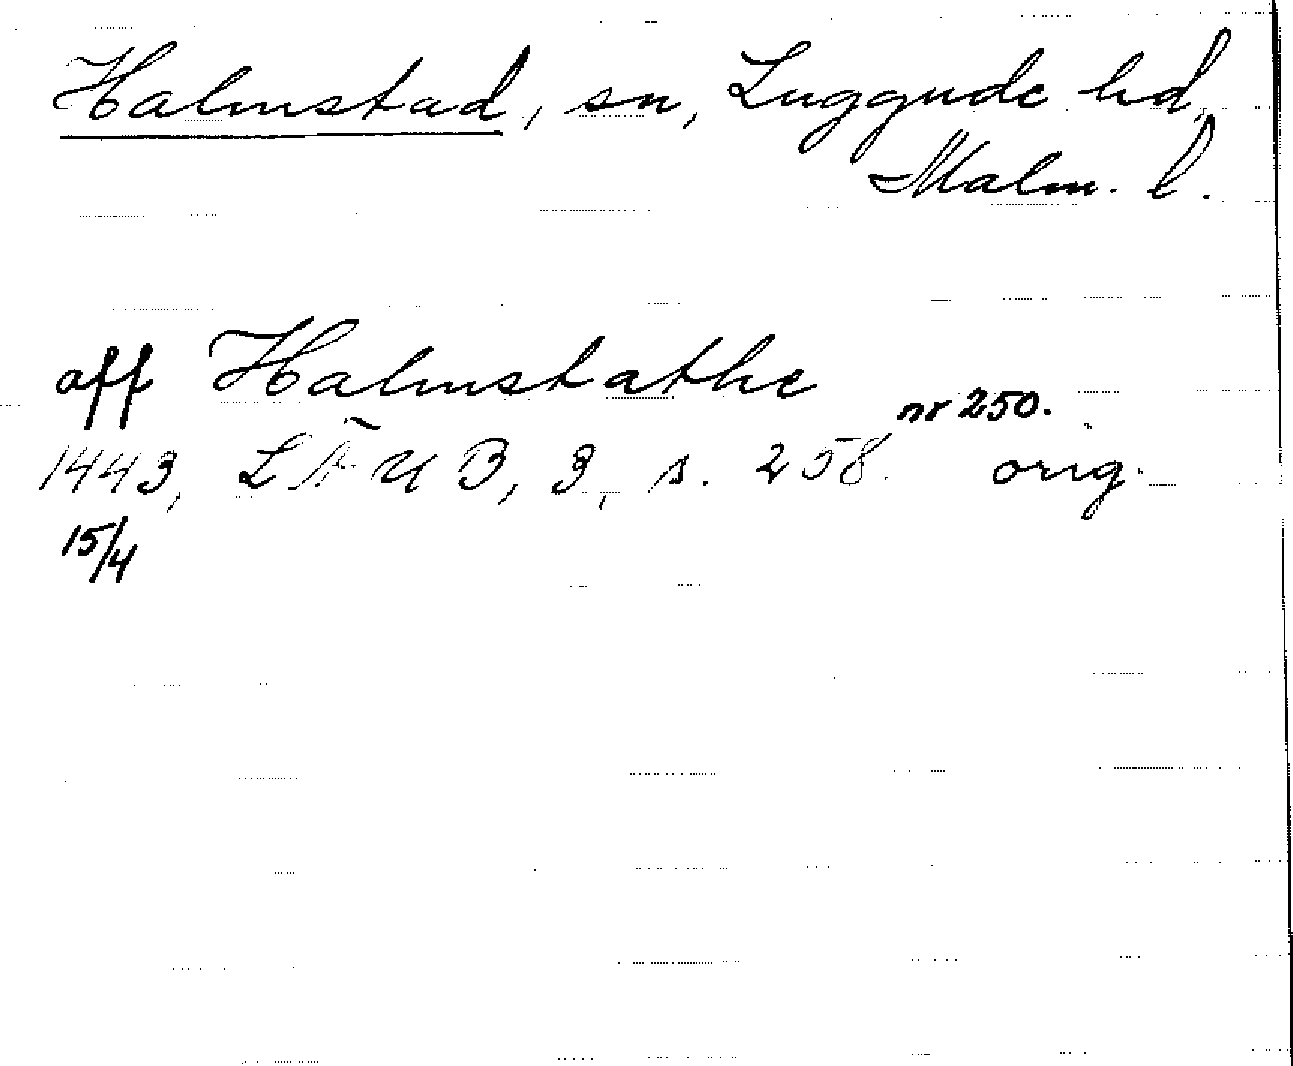 Halmstad, sn, Luggude hd,
Malm. l.
aff Halmstathe
nr 250.
1443, LÄUB, 3, s. 258. orig.
15/4